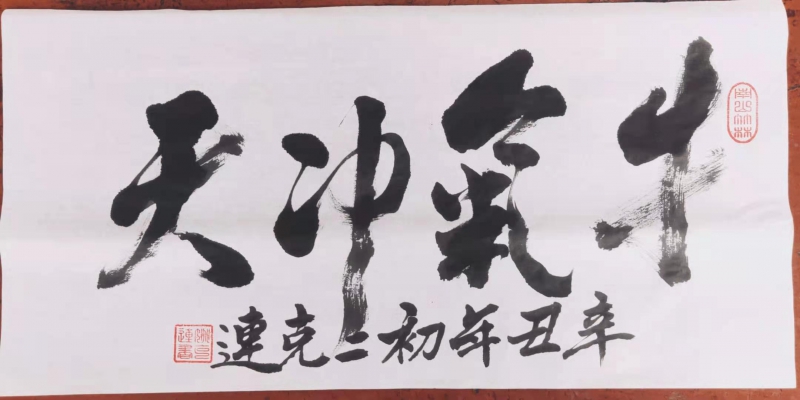 牛氣冲天
辛丑年初二克連